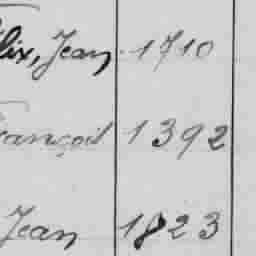 lix, Jean 1710
rançois 1392
Jean 1823